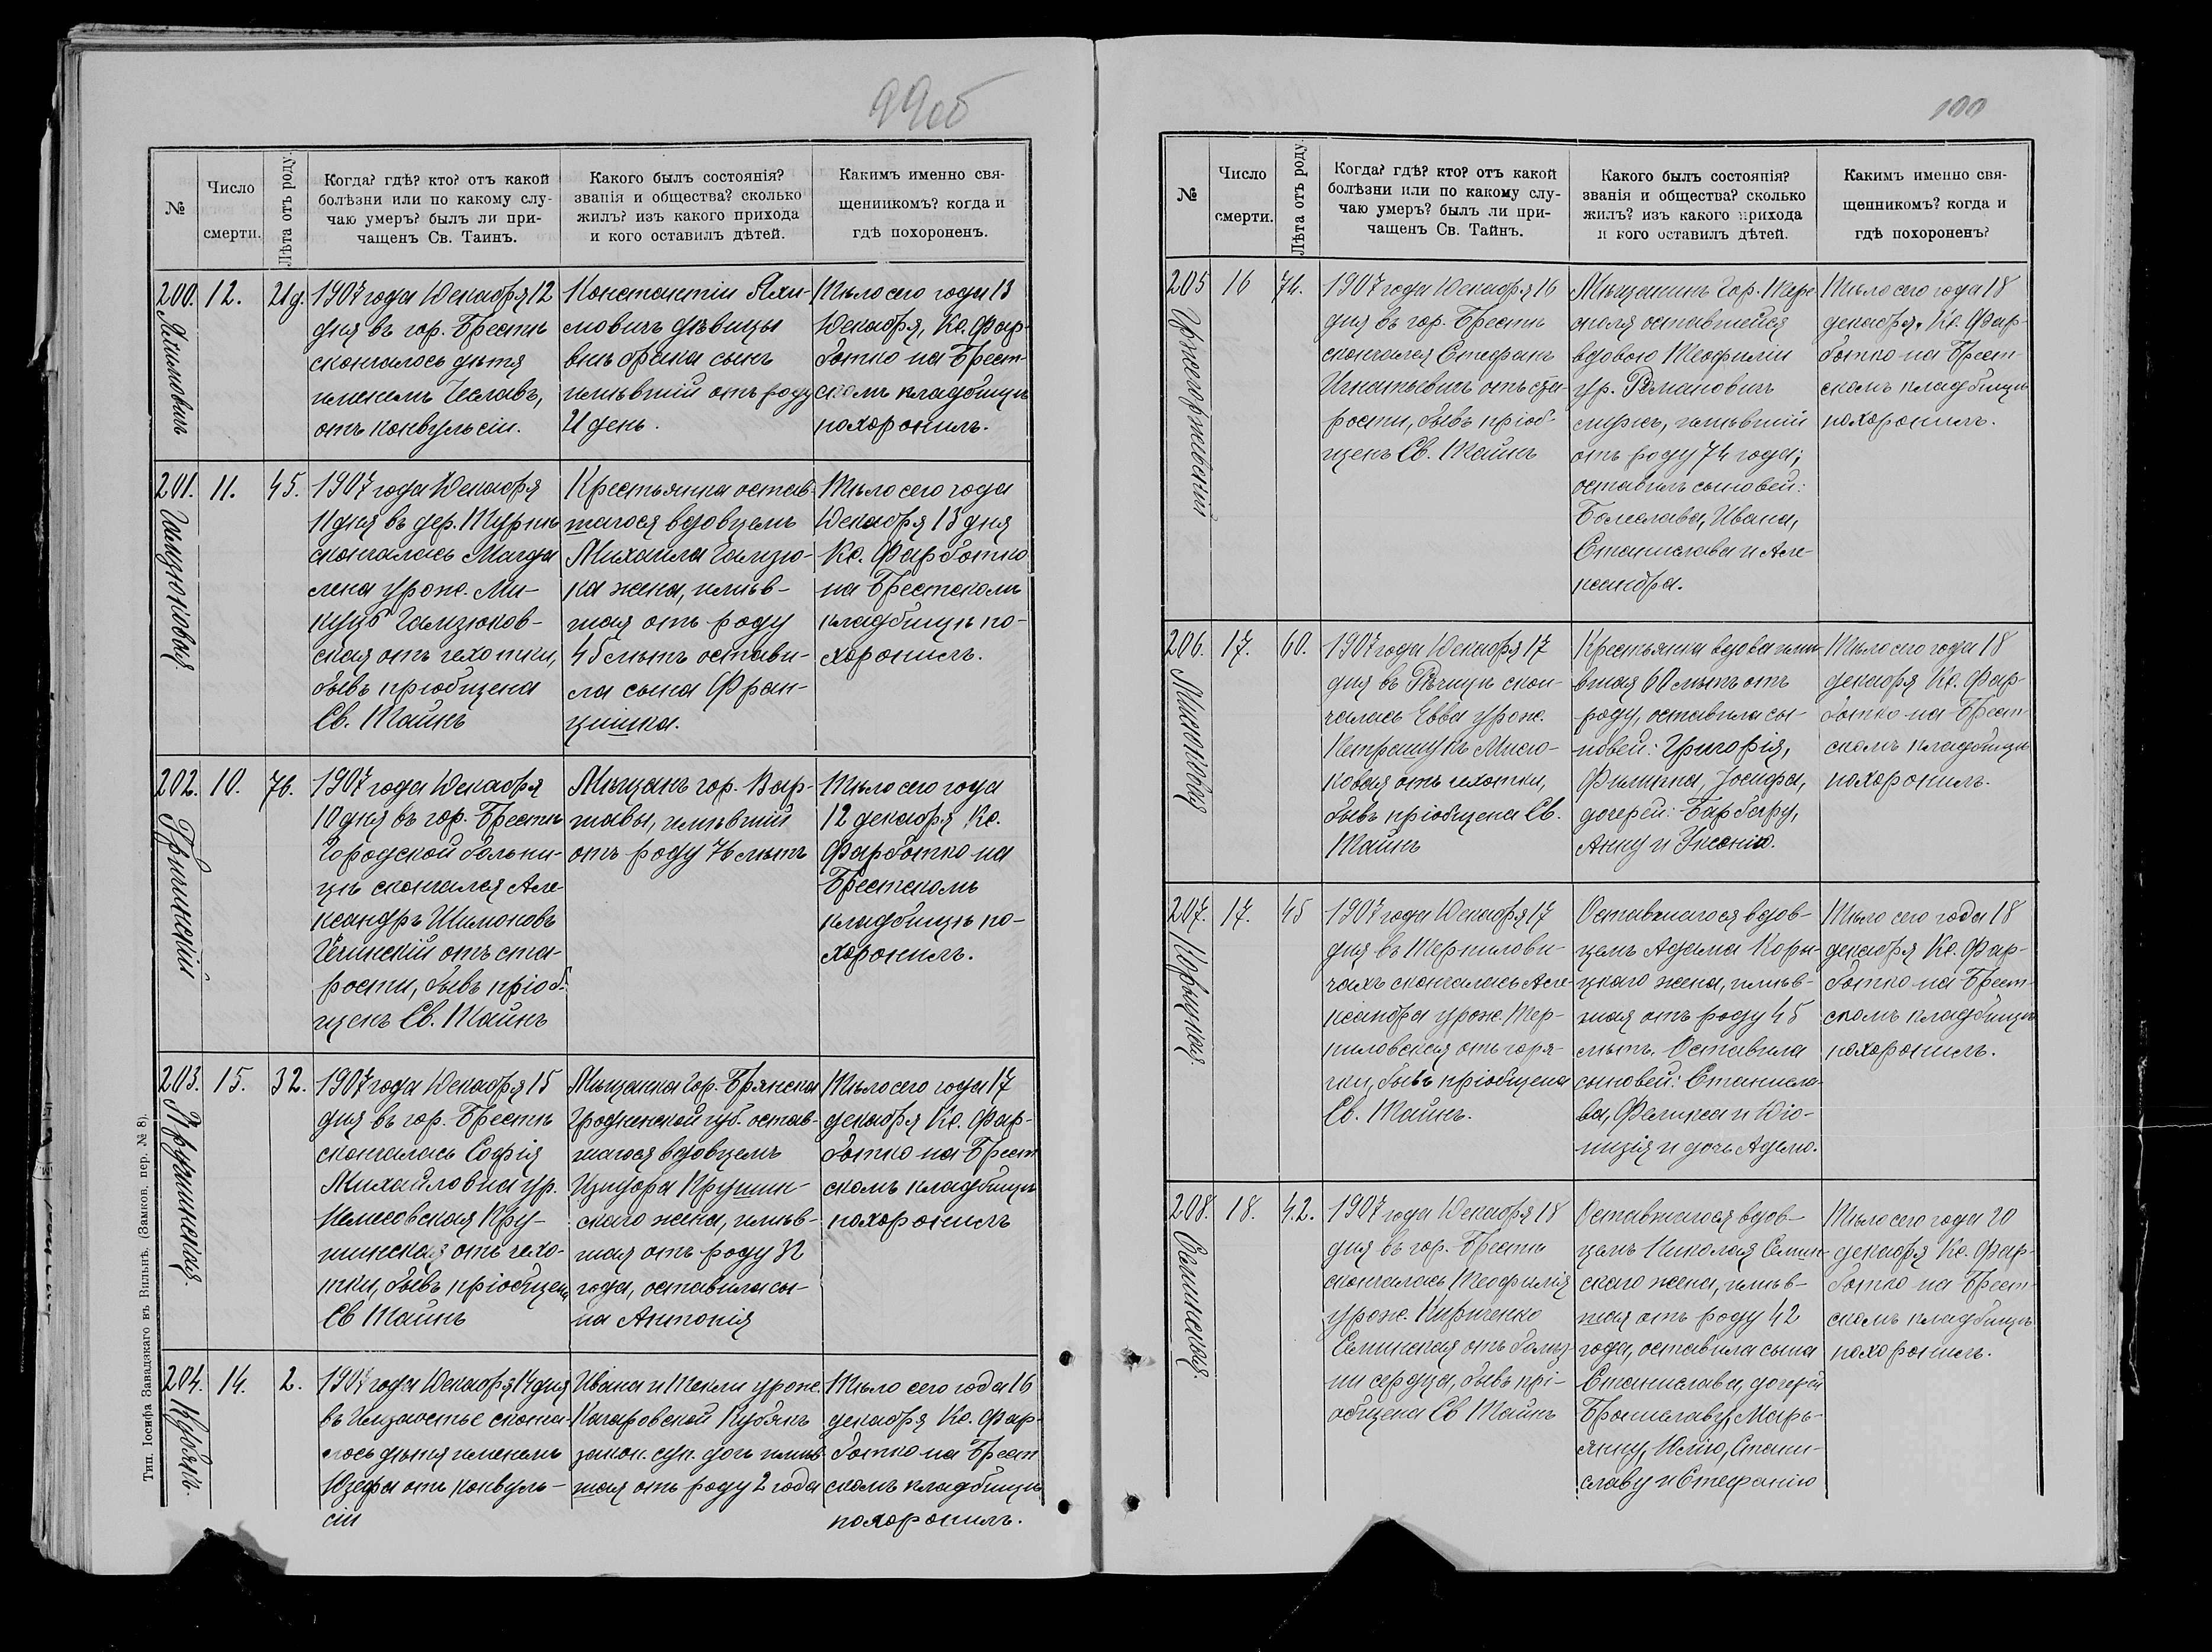 99об
№
Число
смерти.
Лѣта отъ роду.
Когда? гдѣ? кто? отъ какой
болѣзни или по какому слу-
чаю умеръ? былъ ли при-
чащенъ Св. Таинъ.
Какого былъ состоянія?
званія и общества? сколько
жилъ? изъ какого прихода
и кого оставилъ дѣтей.
Какимъ именно свя-
щенникомъ? когда и
гдѣ похороненъ.
200. 12. 21 д.
Яхимовичъ
1907 года Декабря 12
дня въ гор. Брестѣ
скончалось дитя
именемъ Чеславъ,
отъ конвульсіи.
Констанціи Яхи-
мовичъ дѣвицы
внѣ брака сынъ
имѣвшій отъ роду
21 день.
Тѣло сего года 13
Декабря, Кс. Фар-
ботко на Брест-
скомъ кладбищѣ
похоронилъ.
201. 11. 45.
1907 года Декабря
11 дня въ дер.
скончалась Магда
лена урож. Ми-
куцъ Гализюков-
ская отъ чахотки,
бывъ пріобщена
Св. Тайнъ
Крестьянка остав-
шагося вдовцемъ
Михаила Гализю-
ка жена, имѣв-
шая отъ роду
45 лѣтъ остави-
ла сына Фран-
цишка.
Тѣло сего года
Декабря 13 дня
Кс. Фарботко
на Брестскомъ
кладбищѣ по-
хоронилъ.
202. 10. 76.
1907 года Декабря
10 дня въ гор. Брестѣ
Городской больни-
цѣ скончался Але-
ксандръ Шимоновъ
отъ ста-
рости, бывъ пріоб-
щенъ Св. Тайнъ
Мѣщанъ гор. Вар-
шавы, имѣвшій
отъ роду 76 лѣтъ
Тѣло сего года
12 декабря Кс.
Фарботко на
Брестскомъ
кладбищѣ по-
хоронилъ.
203. 15. 32.
Крушинская.
1907 года Декабря 15
дня въ гор. Брестѣ
скончалась Софія
Михайловна ур.
Кру-
шинская отъ чахо-
тки, бывъ пріобщена
Св Тайнъ
Мѣщанка гор. Брянска
Гродненской губ. остав-
шагося вдовцемъ
Изидора Крушин-
скаго жена, имѣв-
шая отъ роду 32
года, оставила сы-
на Антонія
Тѣло сего года 17
декабря Кс. Фар-
ботко на Брест
скомъ кладбищѣ
похоронилъ
204. 14. 2.
Кубякъ.
1907 года Декабря 14 дня
въ сконча-
лось дитя именемъ
Юзефа отъ конвуль-
сіи
Ивана и Теклы урож.
Качаровской Кубякъ
закон. суп. дочь имѣв
шая отъ роду 2 года
Тѣло сего года 16
декабря Кс. Фар-
ботко на Брест
скомъ кладбищѣ
похоронилъ.
Тип. Іосифа Завадзкаго въ Вильнѣ. (Замков. пер. № 8).
100
№
Число
смерти.
Лѣта отъ роду.
Когда? гдѣ? кто? отъ какой
болѣзни или по какому слу-
чаю умеръ? былъ ли при-
чащенъ Св. Тайнъ.
Какого былъ состоянія?
званія и общества? сколько
жилъ? изъ какого прихода
и кого оставилъ дѣтей.
Какимъ именно свя-
щенникомъ? когда и
гдѣ похороненъ?
205 16 74.
Гржегоржевскій
1907 года Декабря 16
дня въ гор. Брестѣ
скончался Стефанъ
Игнатьевичъ отъ ста-
рости, бывъ пріоб-
щенъ Св. Тайнъ
Мѣщанинъ гор. Терес-
поля оставшейся
вдовою Теофиліи
ур. Романовичъ
мужъ, имѣвшій
отъ роду 74 года;
оставилъ сыновей:
Болеслава, Ивана,
Станислава и Але
ксандра.
Тѣло сего года 18
декабря. Кс. Фар-
ботко на Брест-
скомъ кладбищѣ
похоронилъ.
206. 17. 60.
Мисюковая
1907 года Декабря 17
дня въ Рѣчицѣ скон-
чалась Евва урож.
Петрашукъ Мисю-
ковая отъ чахотки,
бывъ пріобщена Св.
Тайнъ
Крестьянка вдова имѣ-
вшая 60 лѣтъ отъ
роду, оставила сы-
новей: Григорія,
Филиппа, Іосифа,
дочерей: Барбару,
Анну и Уксенію.
Тѣло сего года 18
декабря Кс. Фар-
ботко на Брест-
скомъ кладбищѣ
похоронилъ.
207. 17. 45
Корыцкая
1907 года Декабря 17
дня въ Терпилови-
чахъ скончалась Але-
ксандра урож. Тер-
пиловская отъ горя-
чки, бывъ пріобщена
Св. Тайнъ.
Оставшагося вдов-
цемъ Адама Коры-
цкаго жена, имѣв-
шая отъ роду 45
лѣтъ. Оставила
сыновей: Станисла-
ва, Феликса и Діо-
низія и дочь Адѣлю.
Тѣло сего года 18
декабря Кс. Фар-
ботко на Брест-
скомъ кладбищѣ
похоронилъ.
208. 18. 42.
Семинская.
1907 года Декабря 18
дня въ гор. Брестѣ
скончалась Теофилія
урож. Кириченко
Семинская отъ болѣз
ни сердца, бывъ прі-
общена Св Тайнъ
Оставшагося вдов-
цемъ Николая Семин-
скаго жена, имѣв-
шая отъ роду 42
года, оставила сына
Станислава, дочерей
Брониславу, Марь-
янну, Юлію, Стани-
славу и Стефанію
Тѣло сего года 20
декабря Кс. Фар-
ботко на Брест-
скомъ кладбищѣ
похоронилъ.